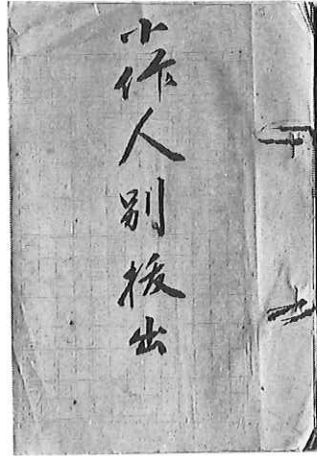 小作人別抜出